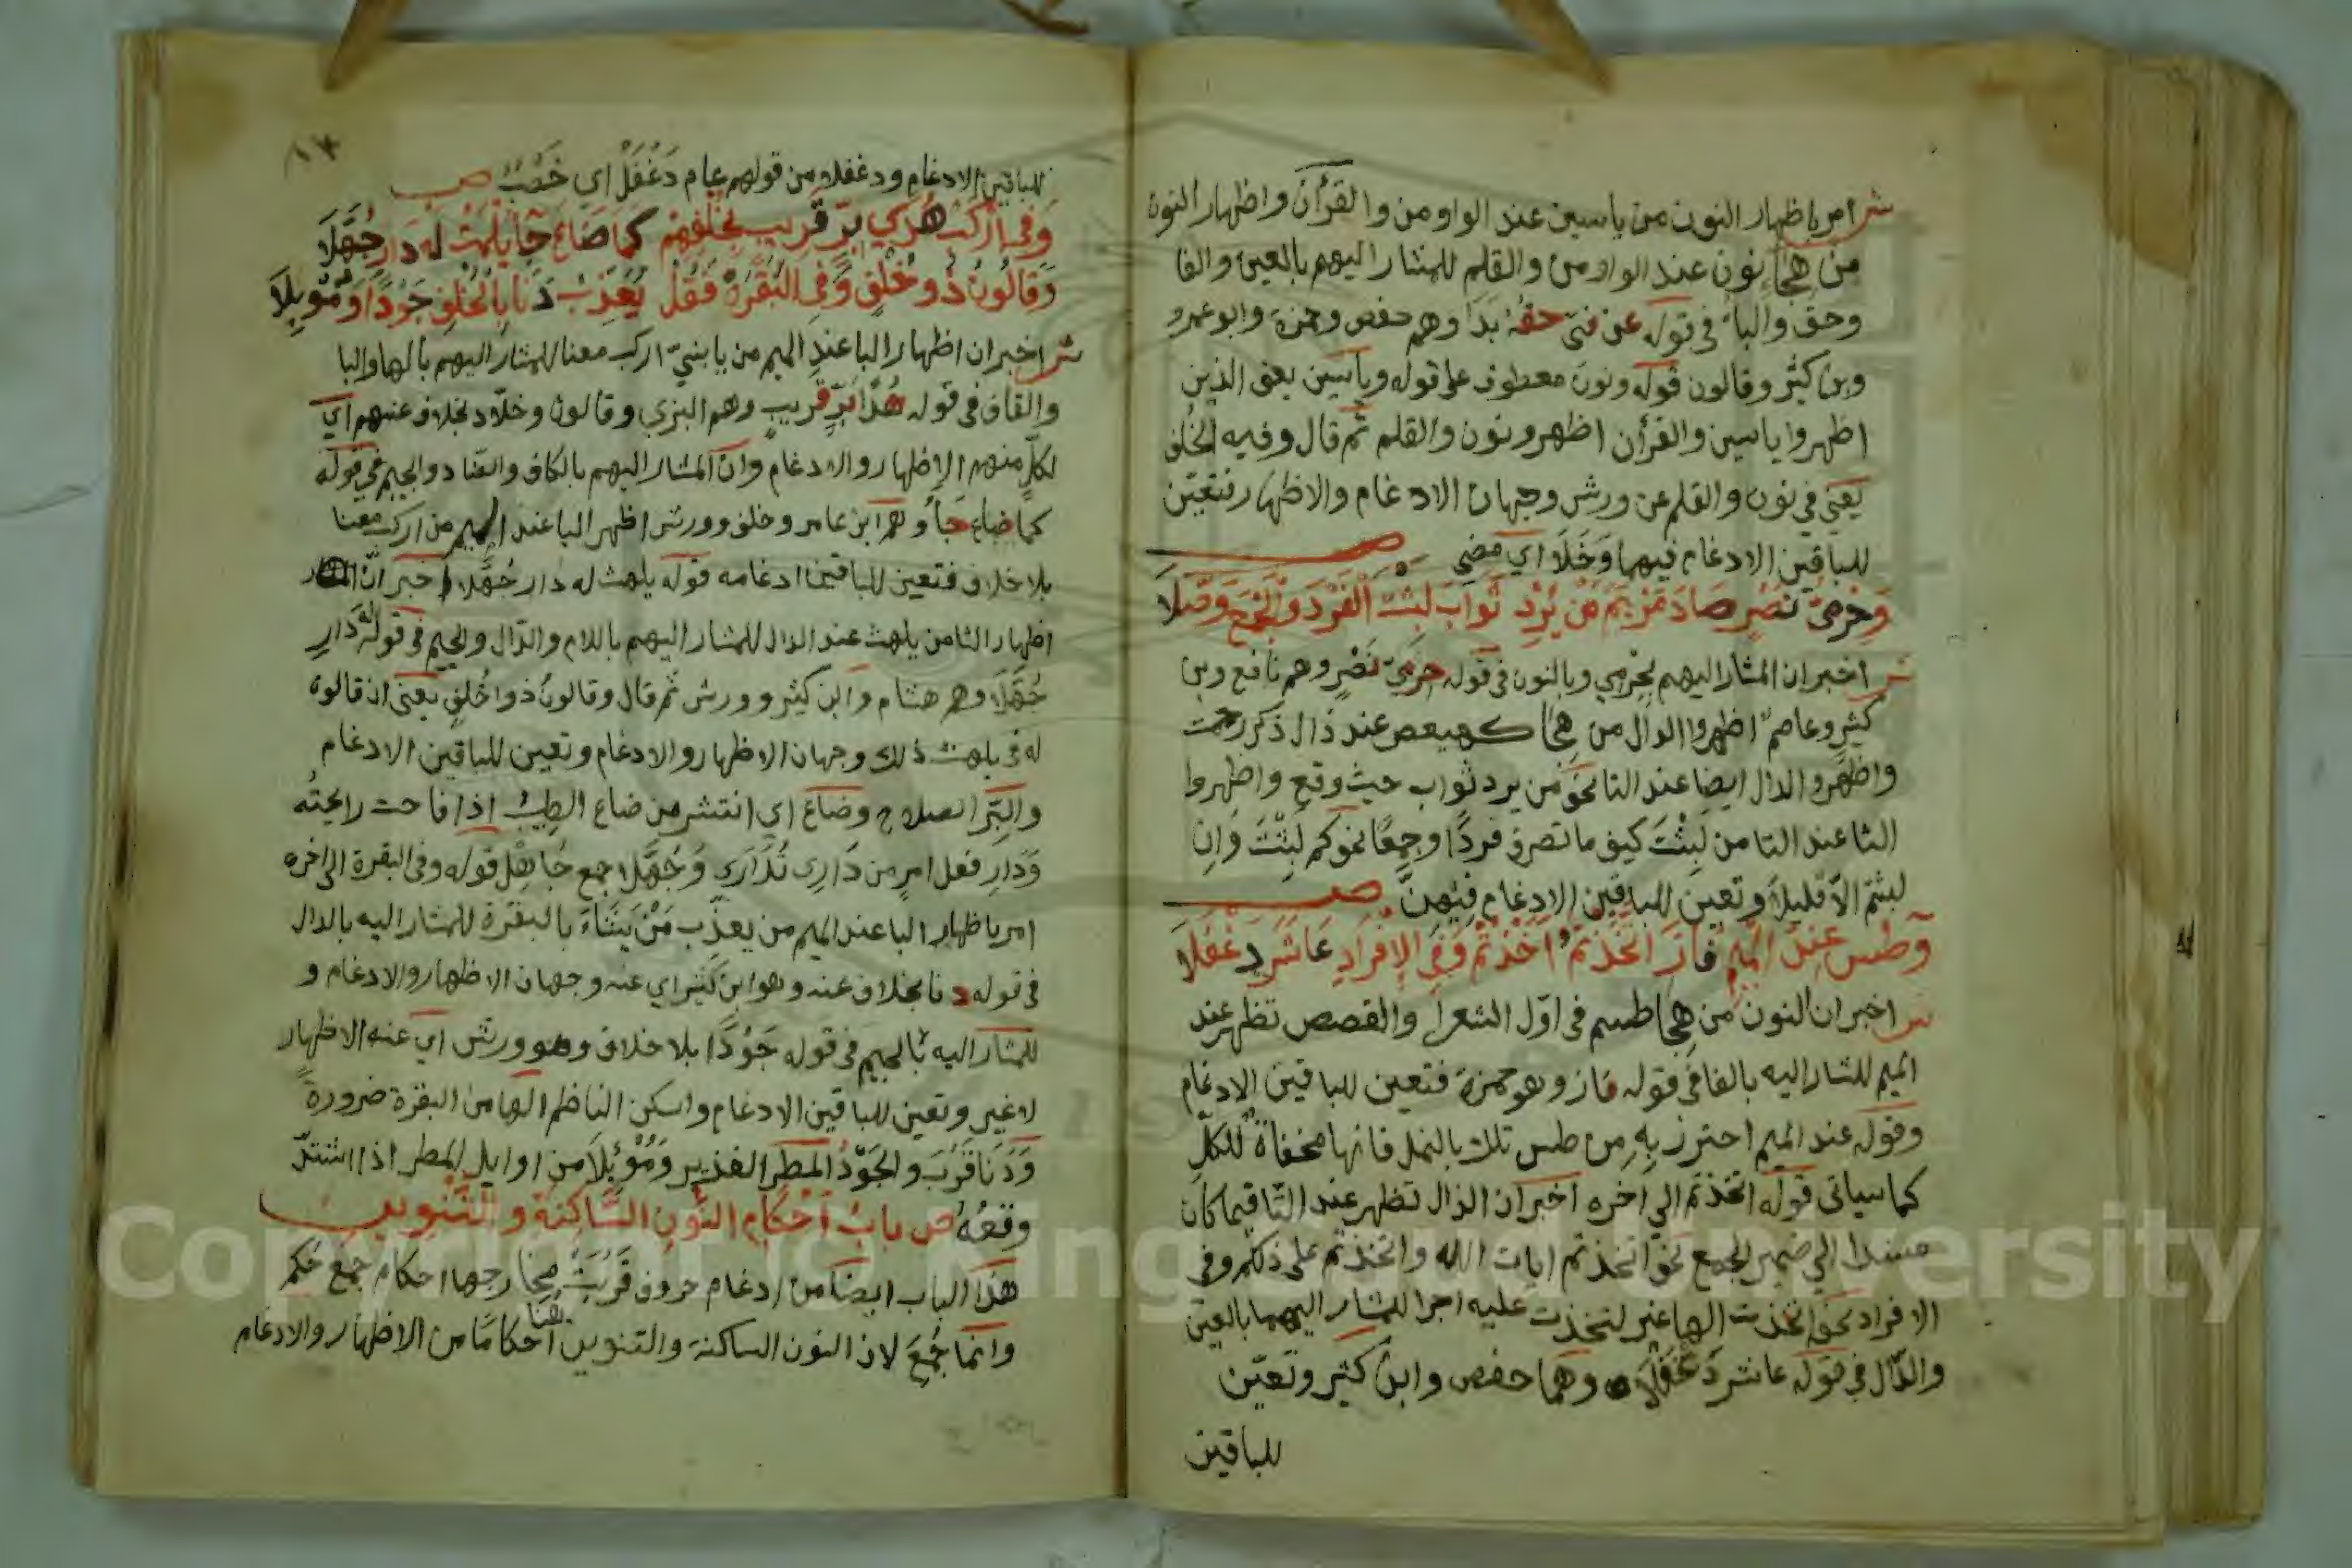 شر امر باظهار النون من ياسين عند الواو من والقرأن واظهار النون
من هجا نون عند الواو من والقلم للمشار اليهم بالعين والفا
وحق والبا في قوله عن فتى حقه بدا وهم حفص وحمزة وابوعمرو
وبن كثير وقالون قوله ونون معطوف على قوله وياسين يعني الذين
اظهروا ياسين والقرأن اظهرو نون والقلم ثم قال وفيه الخلف
يعني في نون والقلم عن ورش وجهان الادغام والاظهار فتعين
للباقين الادغام فيهما وخلا اي مضى ص
وحرمي نصر صاد مريم من يرد ثواب لبثت الفرد والجمع وصلا
شر اخبر ان المشار اليهم بحرمي وبالنون في قوله حرمي نصر وهم نافع وبن
كثير وعاصم اظهروا الدال من هجا كهيعص عند ذال ذكر رحمت
واظهرو الدال ايضا عند الثا نحو من يرد ثواب حيث وقع واظهروا
الثا عند التا من لبثت كيف ما تصرف فردا وجمعا نحو كم لبثت وان
لبثتم الا قليلا وتعين للباقين الادغام فيهن ص
وطس عند الميم فاز اتخذتم اخذتم وفي الافراد عاشر دغفلا
شر اخبر ان النون من هجا طسم في اول الشعرا والقصص تظهر عند
الميم للمشار اليه بالفا في قوله فاز وهو حمزة فتعين للباقين الادغام
وقوله عند الميم احترز به من طس تلك بالنمل فانها مخفاة للكل
كما سياتى قوله اتخذتم الي اخره اخبر ان الذال تظهر عند التا فيما كان
مسندا الي ضمير الجمع نحو اتخذتم ايات الله واخذتم على ذلكم وفي
الافراد نحو اتخذت الها غير لتخذت عليه اجرا للمشار اليهما بالعين
والدال في قوله عاشر دغفلا وهما حفص وابن كثير وتعين
للباقين
١٣
للباقين الادغام ودغفلا من قولهم عام دغفل اي خصب ص
وفي اركب هدى بر قريب بخلفهم كما ضاع جا يلهث له دار جهلا
وقالون ذو خلف وفي البقرة فقل يعذب دنا بالخلف جودا وموبلا
شر اخبر ان اظهار البا عند الميم من يا بني اركب معنا للمشار اليهم بالها والبا
والقاف في قوله هدا بر قريب وهم البزي وقالون وخلاد بخلاف عنهم اي
لكل منهم الاظهار والادغام وان المشار اليهم بالكاف والضاد والجيم في قوله
كما ضاع جا وهم ابن عامر وخلف وورش اظهر البا عند الميم من اركب معنا
بلا خلاف فتعين للباقين ادغامه قوله يلهث له دار جهلا اخبر ان
اظهار الثا من يلهث عند الذال للمشار اليهم باللام والدال والجيم في قوله له دار
جهلا وهم هشام وابن كثير وورش ثم قال وقالون ذوا خلف يعني ان قالون
له في يلهث ذلك وجهان الاظهار والادغام وتعين للباقين الادغام
والبر الصلاح وضاع اي انتشر من ضاع الطيب اذا فاحت رايحته
ودار فعل امر من دارى تدارى وجهلا جمع جاهل قوله وفي البقرة الى اخره
امر باظهار البا عند الميم من يعذب من يشاء بالبقرة للمشار اليه بالدال
في قوله دنا بخلاف عنه وهو ابن كثير اي عنه وجهان الاظهار والادغام و
للمشار اليه بالجيم في قوله جودا بلا خلاف وهو ورش اي عنه الاظهار
لا غير وتعين للباقين الادغام واسكن الناظم الها من البقرة ضرورة
ودنا قرب والجود المطر الغذير وموبلا من اوابل المطر اذا اشتد
وقعه ص باب احكام النون الساكنة والتنوين
هذا الباب ايضا من ادغام حروف قربت مخارجها احكام جمع حكم
وانما جمع لان النون الساكنة والتنوين هنا احكاما من الاظهار والادغام